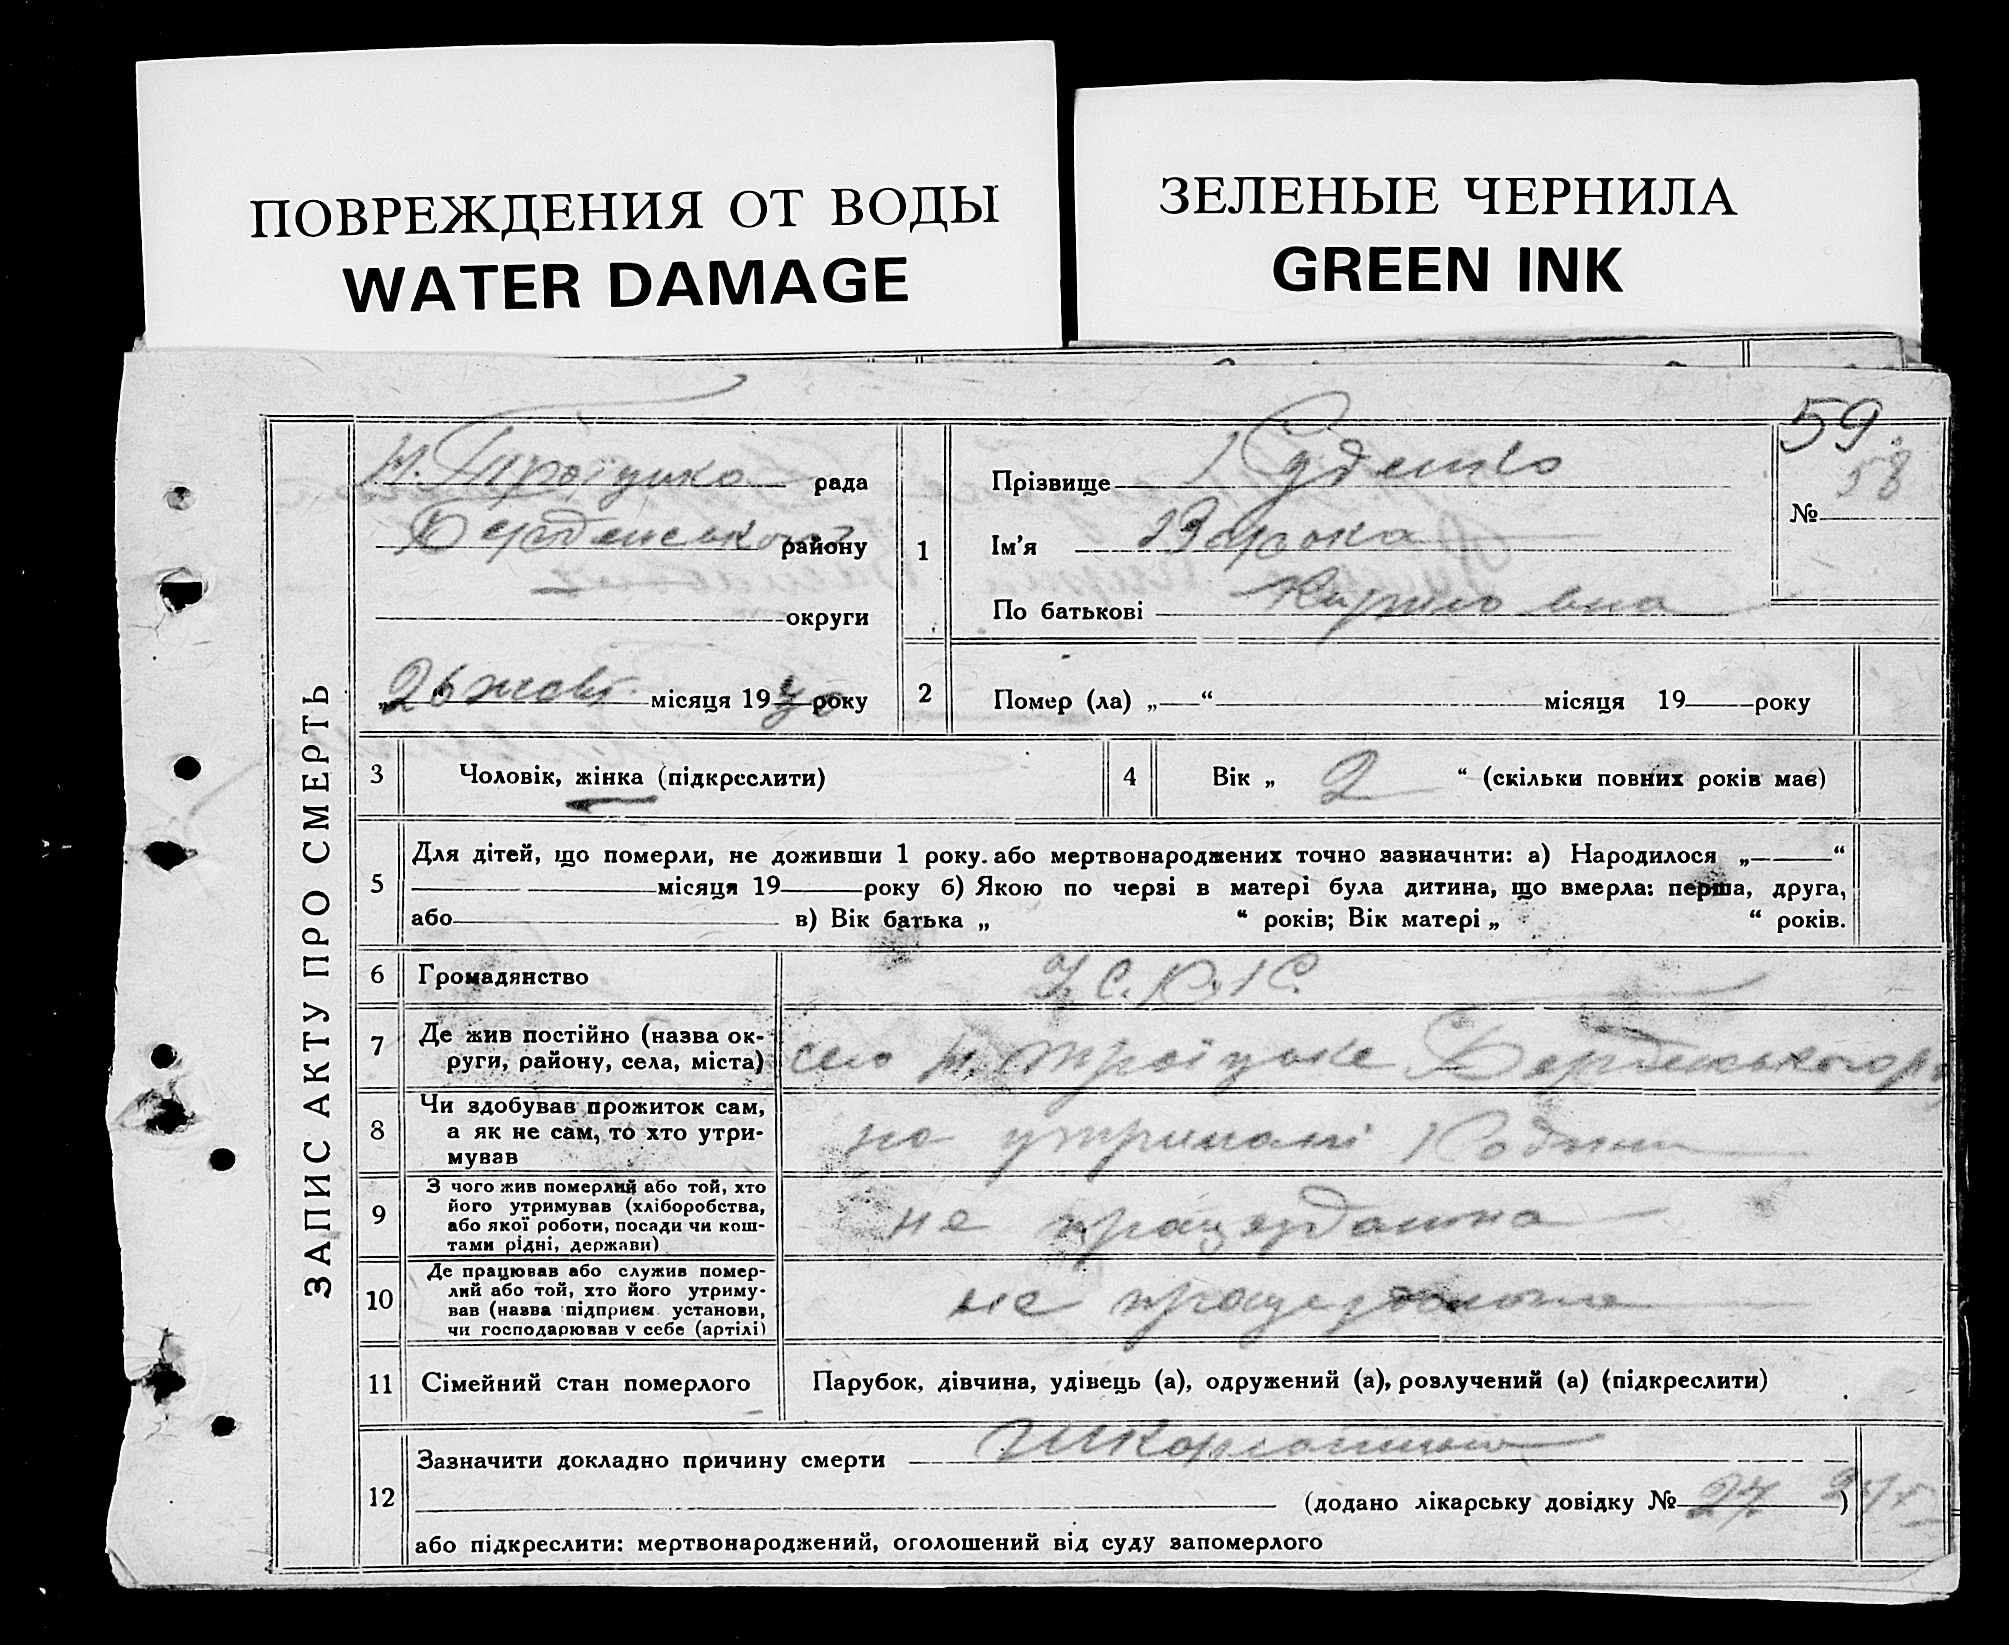 ПОВРЕЖДЕНИЯ ОТ ВОДЫ
WATER DAMAGE
ЗЕЛЕНЫЕ ЧЕРНИЛА
GREEN INK
ЗАПИС АКТУ ПРО СМЕРТЬ
Н. Троїцка рада
Берденського району
округи
„26 жовт. місяця 1930 року
1
Прізвище Руденко
Ім'я
По батькові Кириловна
59
58
№
2
Помер (ла) „ “ місяця 19 року
3
Чоловік, жінка (підкреслити)
4
Вік „ 2 “ (скільки повних років має)
5
Для дітей, що померли, не доживши 1 року. або мертвонароджених точно зазначити: а) Народилося „ “
місяця 19 року б) Якою по черзі в матері була дитина, що вмерла: перша, друга,
або в) Вік батька „ “ років; Вік матері „ “ років.
6
Громадянство
У.С.Р.Р.
7
Де жив постійно (назва ок-
руги, району, села, міста)
село Н. Троїцьке Берденського р
8
Чи здобував прожиток сам,
а як не сам, то хто утри-
мував
на утримані
9
З чого жив померлий або той, хто
його утримував (хліборобства,
або якої роботи, посади чи кош-
тами рідні, держави)
не працездатна
10
Де працював або служив помер-
лий або той, хто його утриму-
вав (назва підприєм. установи,
чи господарював у себе (артілі)
не працездатна
11
Сімейний стан померлого
Парубок, дівчина, удівець (а), одружений (а), розлучений (а) (підкреслити)
12
Зазначити докладно причину смерти
(додано лікарську довідку № 27 )
або підкреслити: мертвонароджений, оголошений від суду запомерлого